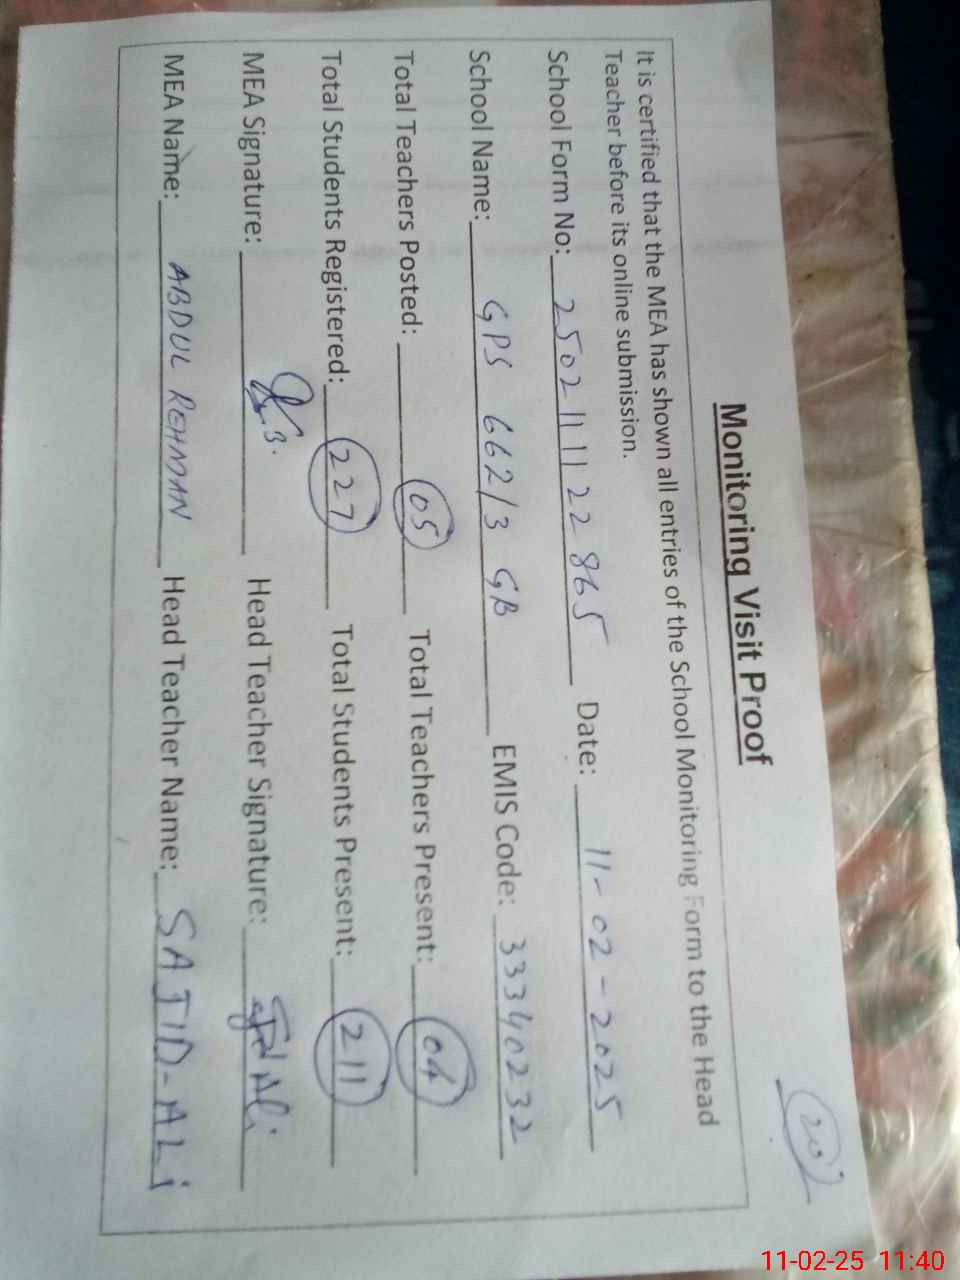 20
Monitoring Visit Proof
It is certified that the MEA has shown all entries of the School Monitoring Form to the Head
Teacher before its online submission.
School Form No: 2502111122865 Date: 11-02-2025
School Name: GPS 662/3 GB EMIS Code: 33340232
Total Teachers Posted: 05 Total Teachers Present: 04
Total Students Registered: 227 Total Students Present: 211
MEA Signature: Head Teacher Signature:
MEA Name: ABDUL REHMAN Head Teacher Name: SAJID-ALi
11-02-25 11:40